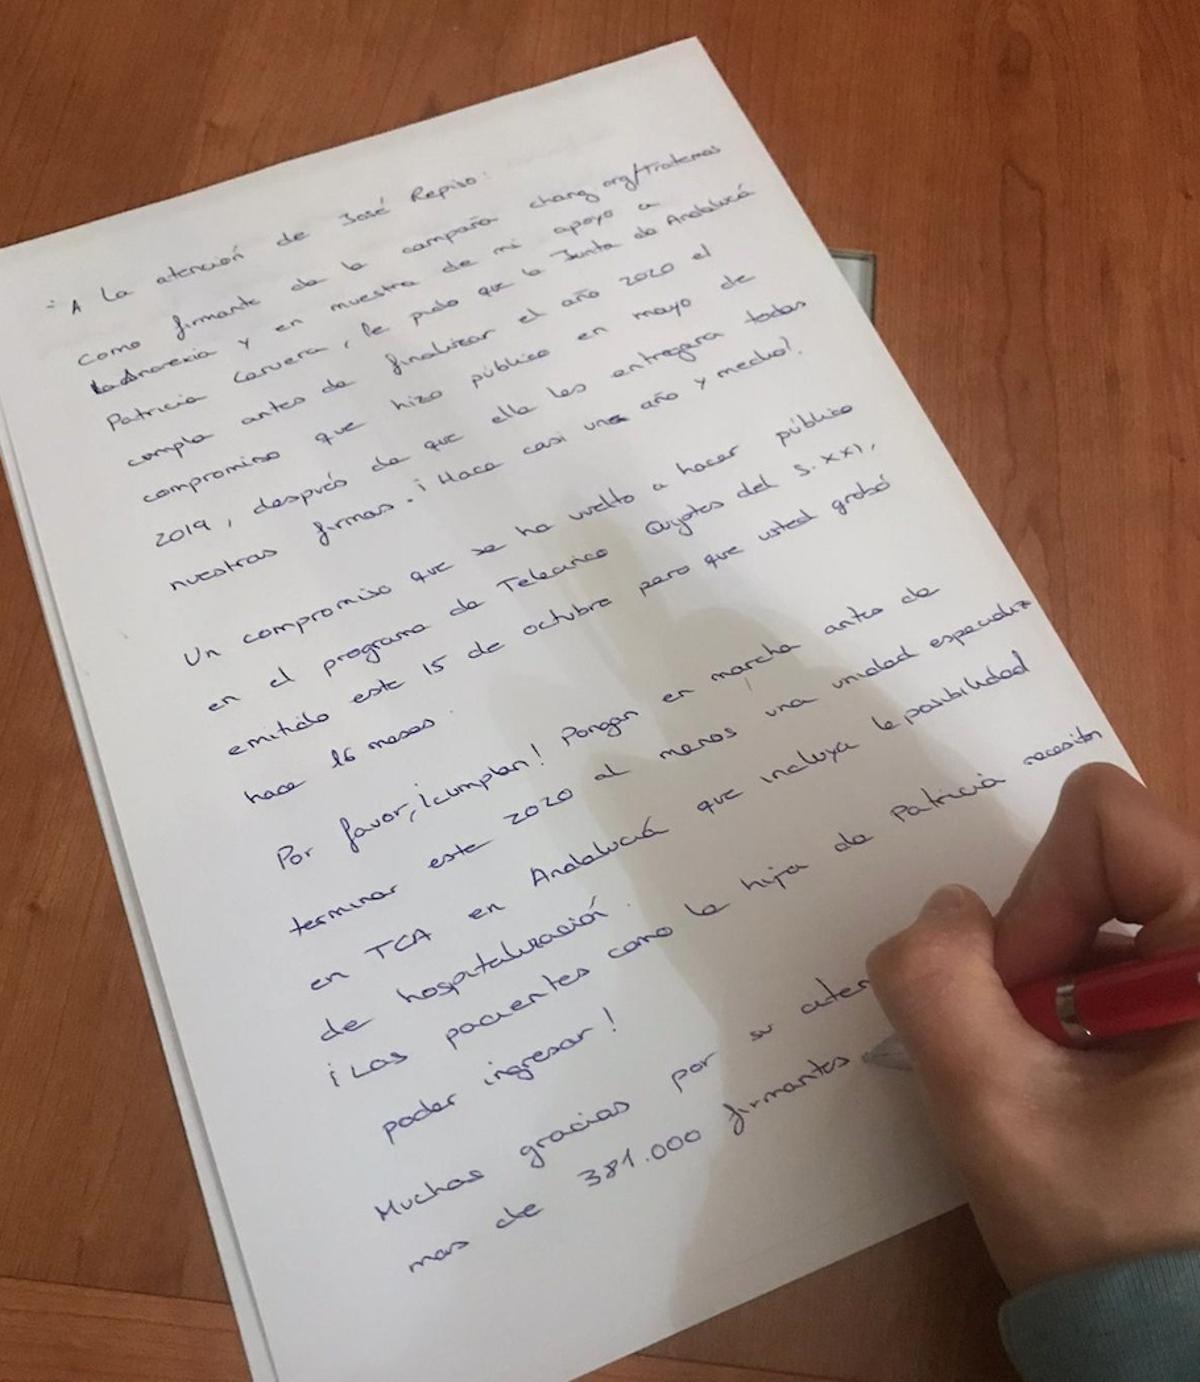 A la atención de José Repiso:
como firmante de la campaña chang.org/Tratemos
laAnorexia y en muestra de mi apoyo a
Patricia Cervera, le pido que la Junta de Andalucía
cumpla antes de finalizar el año 2020 el
compromiso que hizo público en mayo de
2019, después de que ella les entregara todas
nuestras firmas. ¡Hace casi un año y medio!.
Un compromiso que se ha vuelto a hacer público
en el programa de Telecinco Quijotes del S.XXI,
emitido este 15 de octubre pero que usted grabó
hace 16 meses.
Por favor, ¡cumplan! Pongan en marcha antes de
terminar este 2020 al menos una unidad especializ
en TCA en Andalucía que incluya la posibilidad
de hospitalización.
¡Los pacientes como la hija de Patricia necesitan
poder ingresar!
Muchas gracias por su aten
mas de 381.000 firmantes